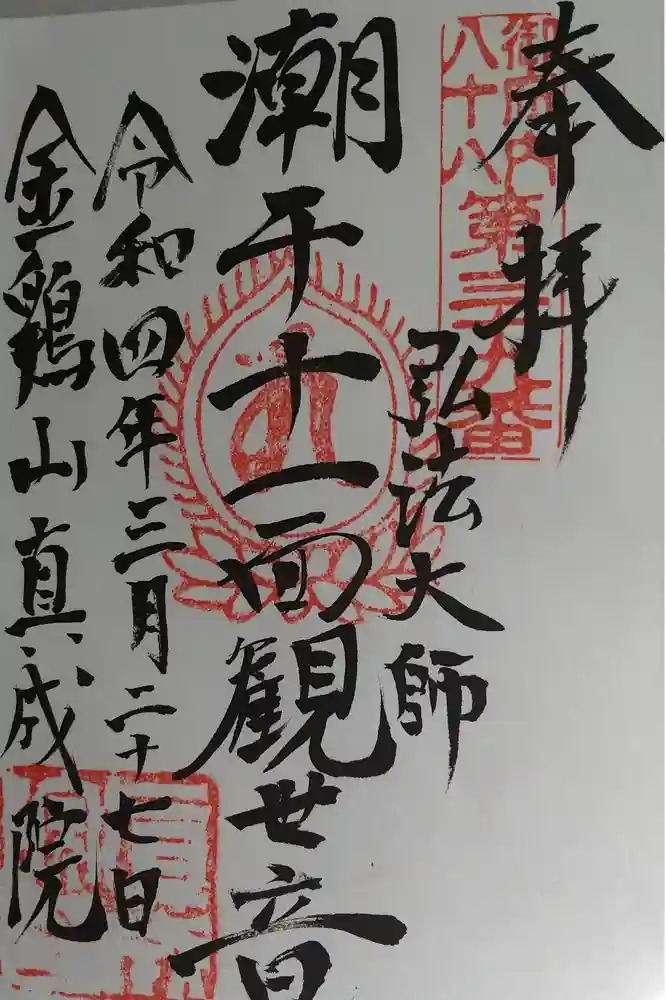 奉拝
御府内
八十八
第三九番
弘法大師
潮干十一面観世音
令和四年三月二十七日
金鶏山真成院